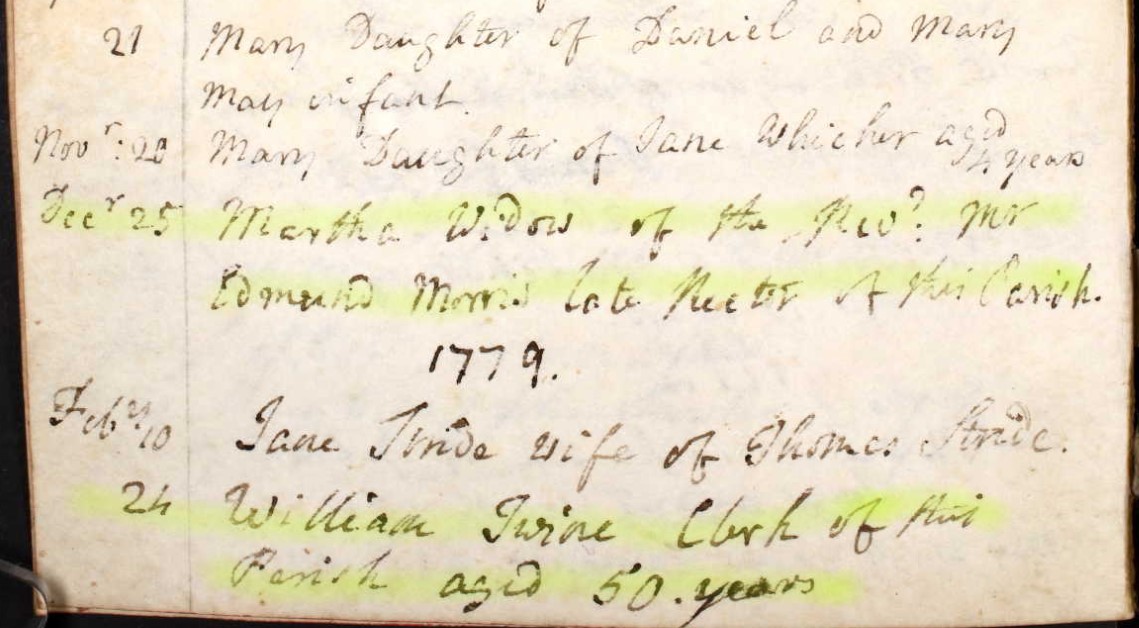 21 Mary Daughter of Daniel and Mary
May infant
Novr: 20 Mary Daughter of Jane Whicher aged
4 years
Decr 25 Martha Widow of the Revd: Mr
Edmund Morris late Rector of this Parish.
1779.
Feby 10 Jane Stride wife of Thomas Stride.
24 William Twine Clerk of this
Parish aged 50. years